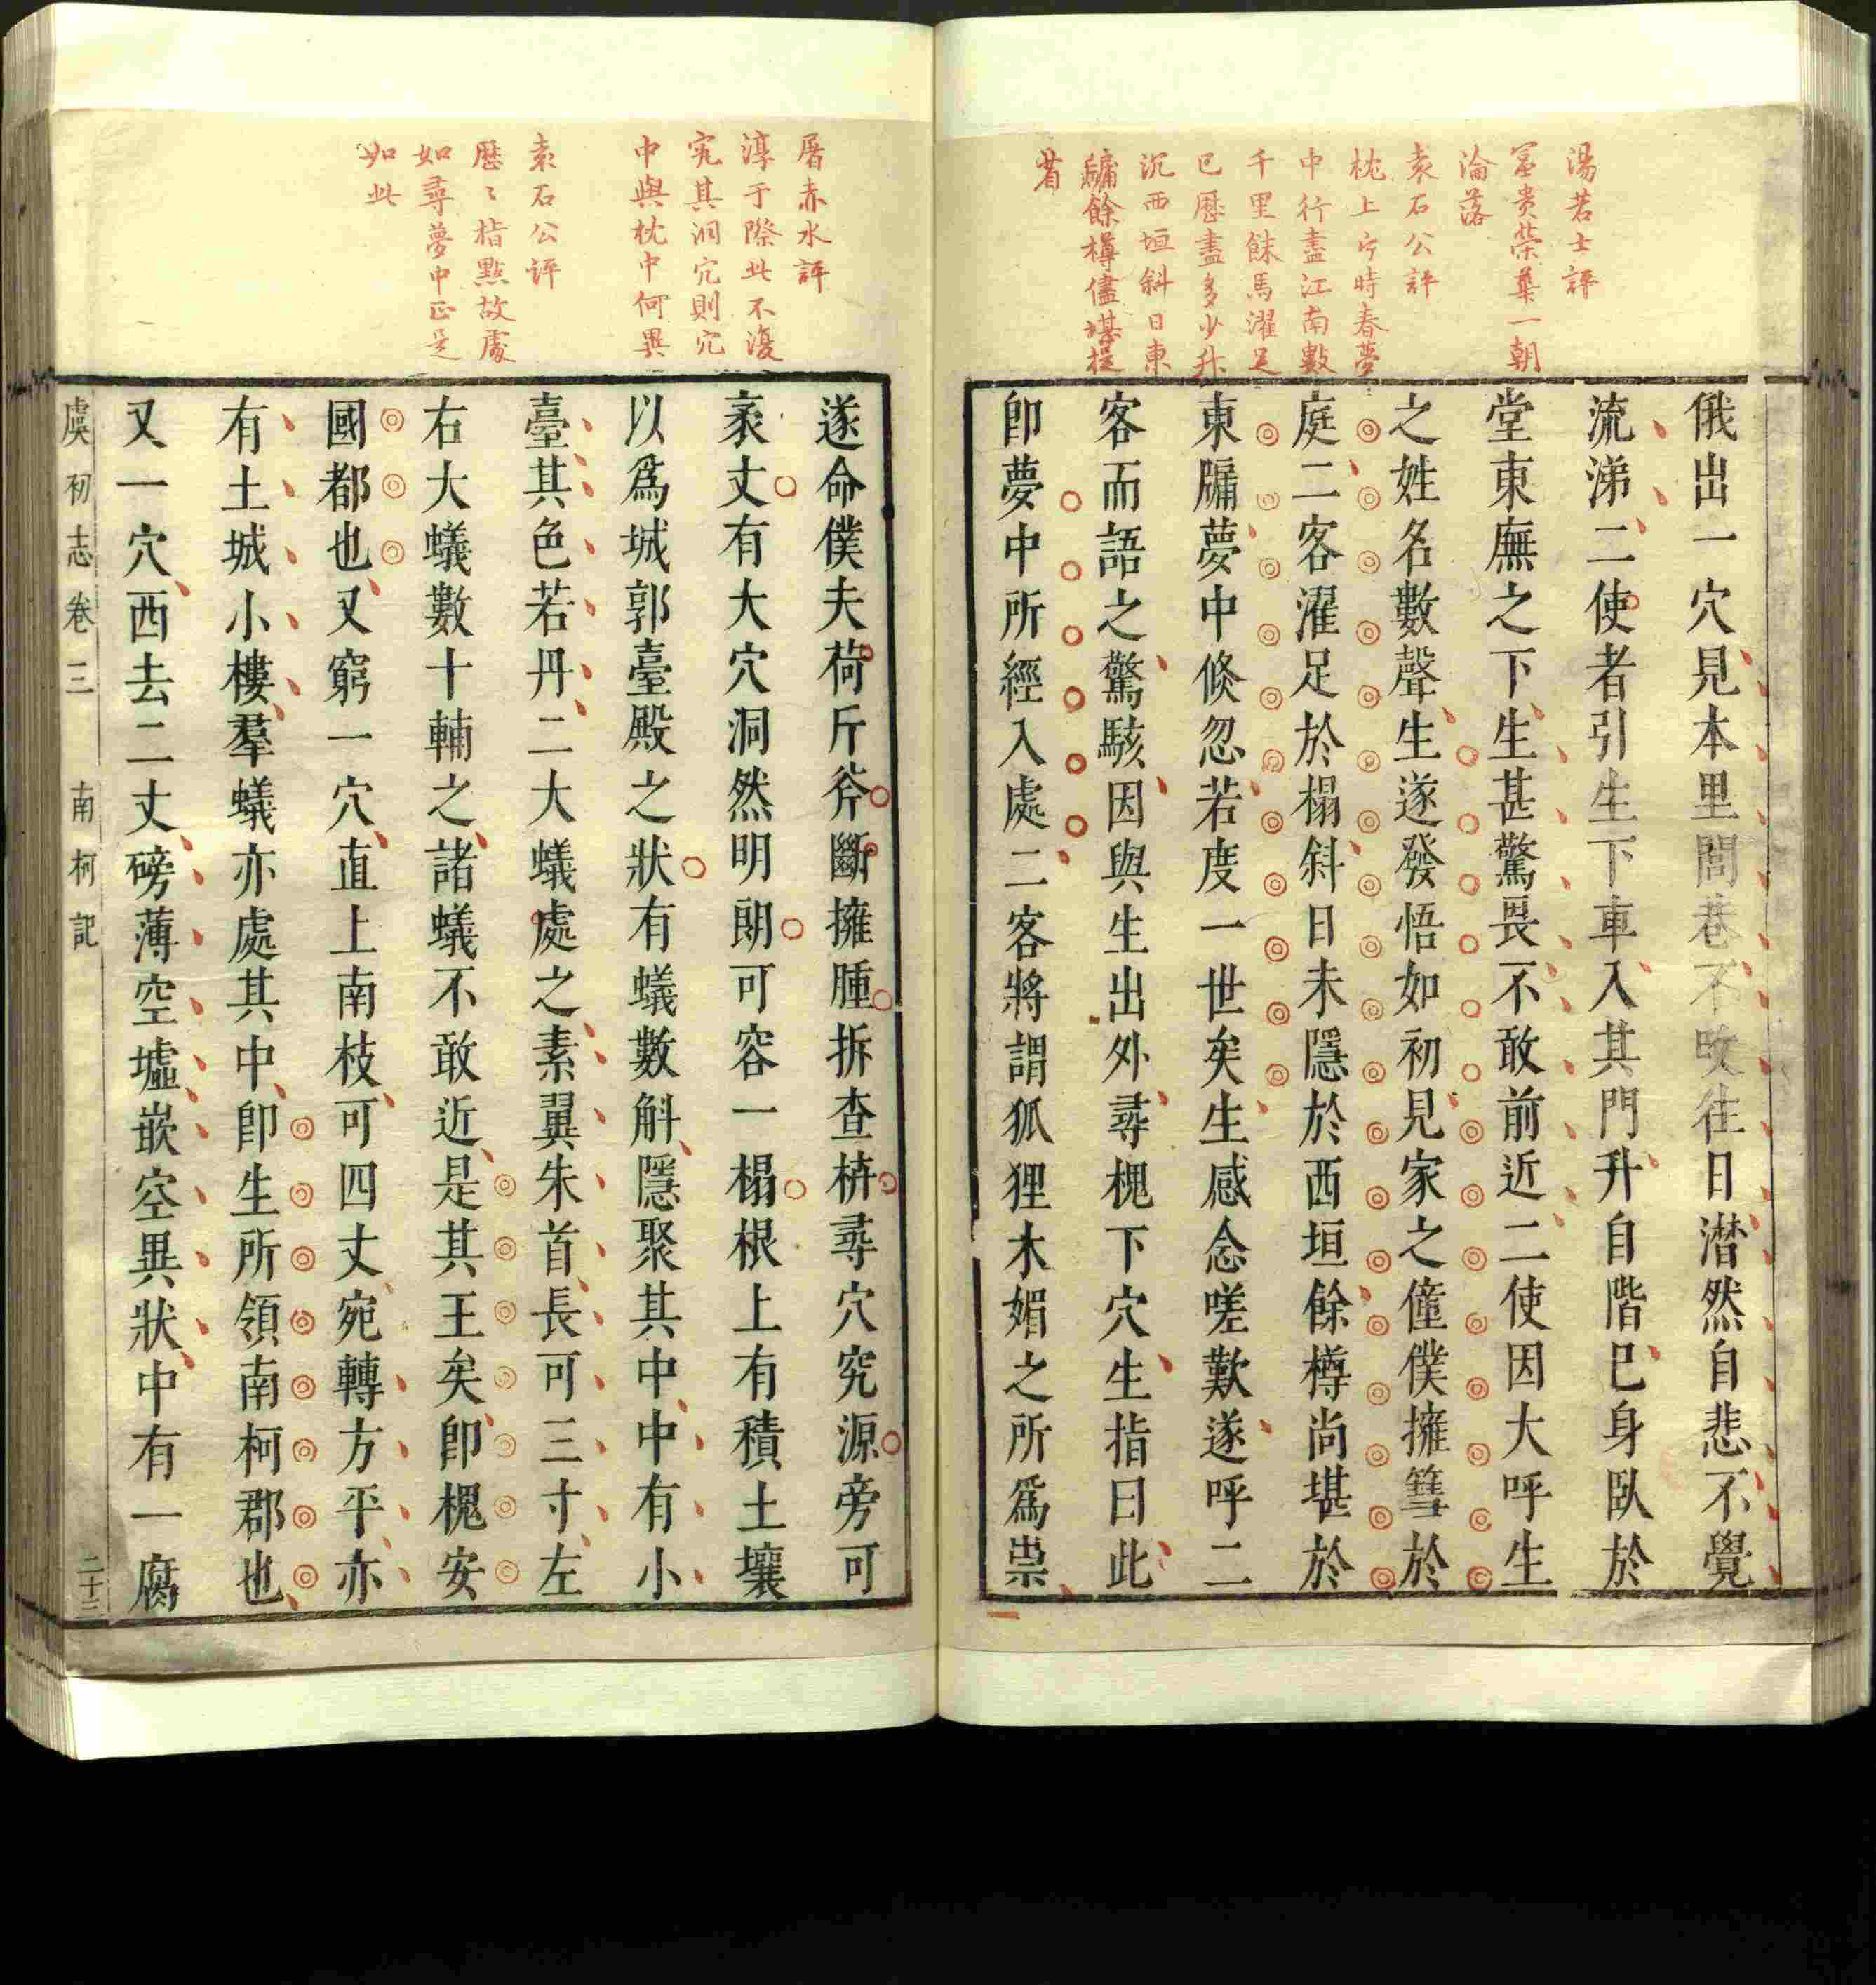 湯若士評
富貴榮華一朝
淪落
袁石公評
枕上片時春夢
中行盡江南數
千里餗馬濯足
已歷盡多少升
沉西垣斜日東
牗餘樽儘堪提
省
俄出一穴見本里閭巷不改往日潸然自悲不覺
流涕二使者引生下車入其門升自階巳身臥於
堂東廡之下生甚驚畏不敢前近二使因大呼生
之姓名數聲生遂發悟如初見家之僮僕擁篲於
庭二客濯足於榻斜日未隱於西垣餘樽尚堪於
東牖夢中倏忽若度一世矣生感念嗟歎遂呼二
客而語之驚駭因與生出外尋槐下穴生指曰此
卽夢中所經入處二客將謂狐狸木媚之所爲祟
屠赤水評
淳于際此不復
究其洞穴則穴
中與枕中何異
袁石公評
歷〻指點故處
如尋夢中正是
如此
遂命僕夫荷斤斧斷擁腫拆查枿尋穴究源旁可
袤丈有大穴洞然明朗可容一榻根上有積土壤
以爲城郭臺殿之狀有蟻數斛隱聚其中中有小
臺其色若丹二大蟻處之素翼朱首長可三寸左
右大蟻數十輔之諸蟻不敢近是其王矣卽槐安
國都也又窮一穴直上南枝可四丈宛轉方平亦
有土城小樓羣蟻亦處其中卽生所領南柯郡也
又一穴西去二丈磅薄空墟嵌空異狀中有一腐
虞初志卷三 南柯記 二十三